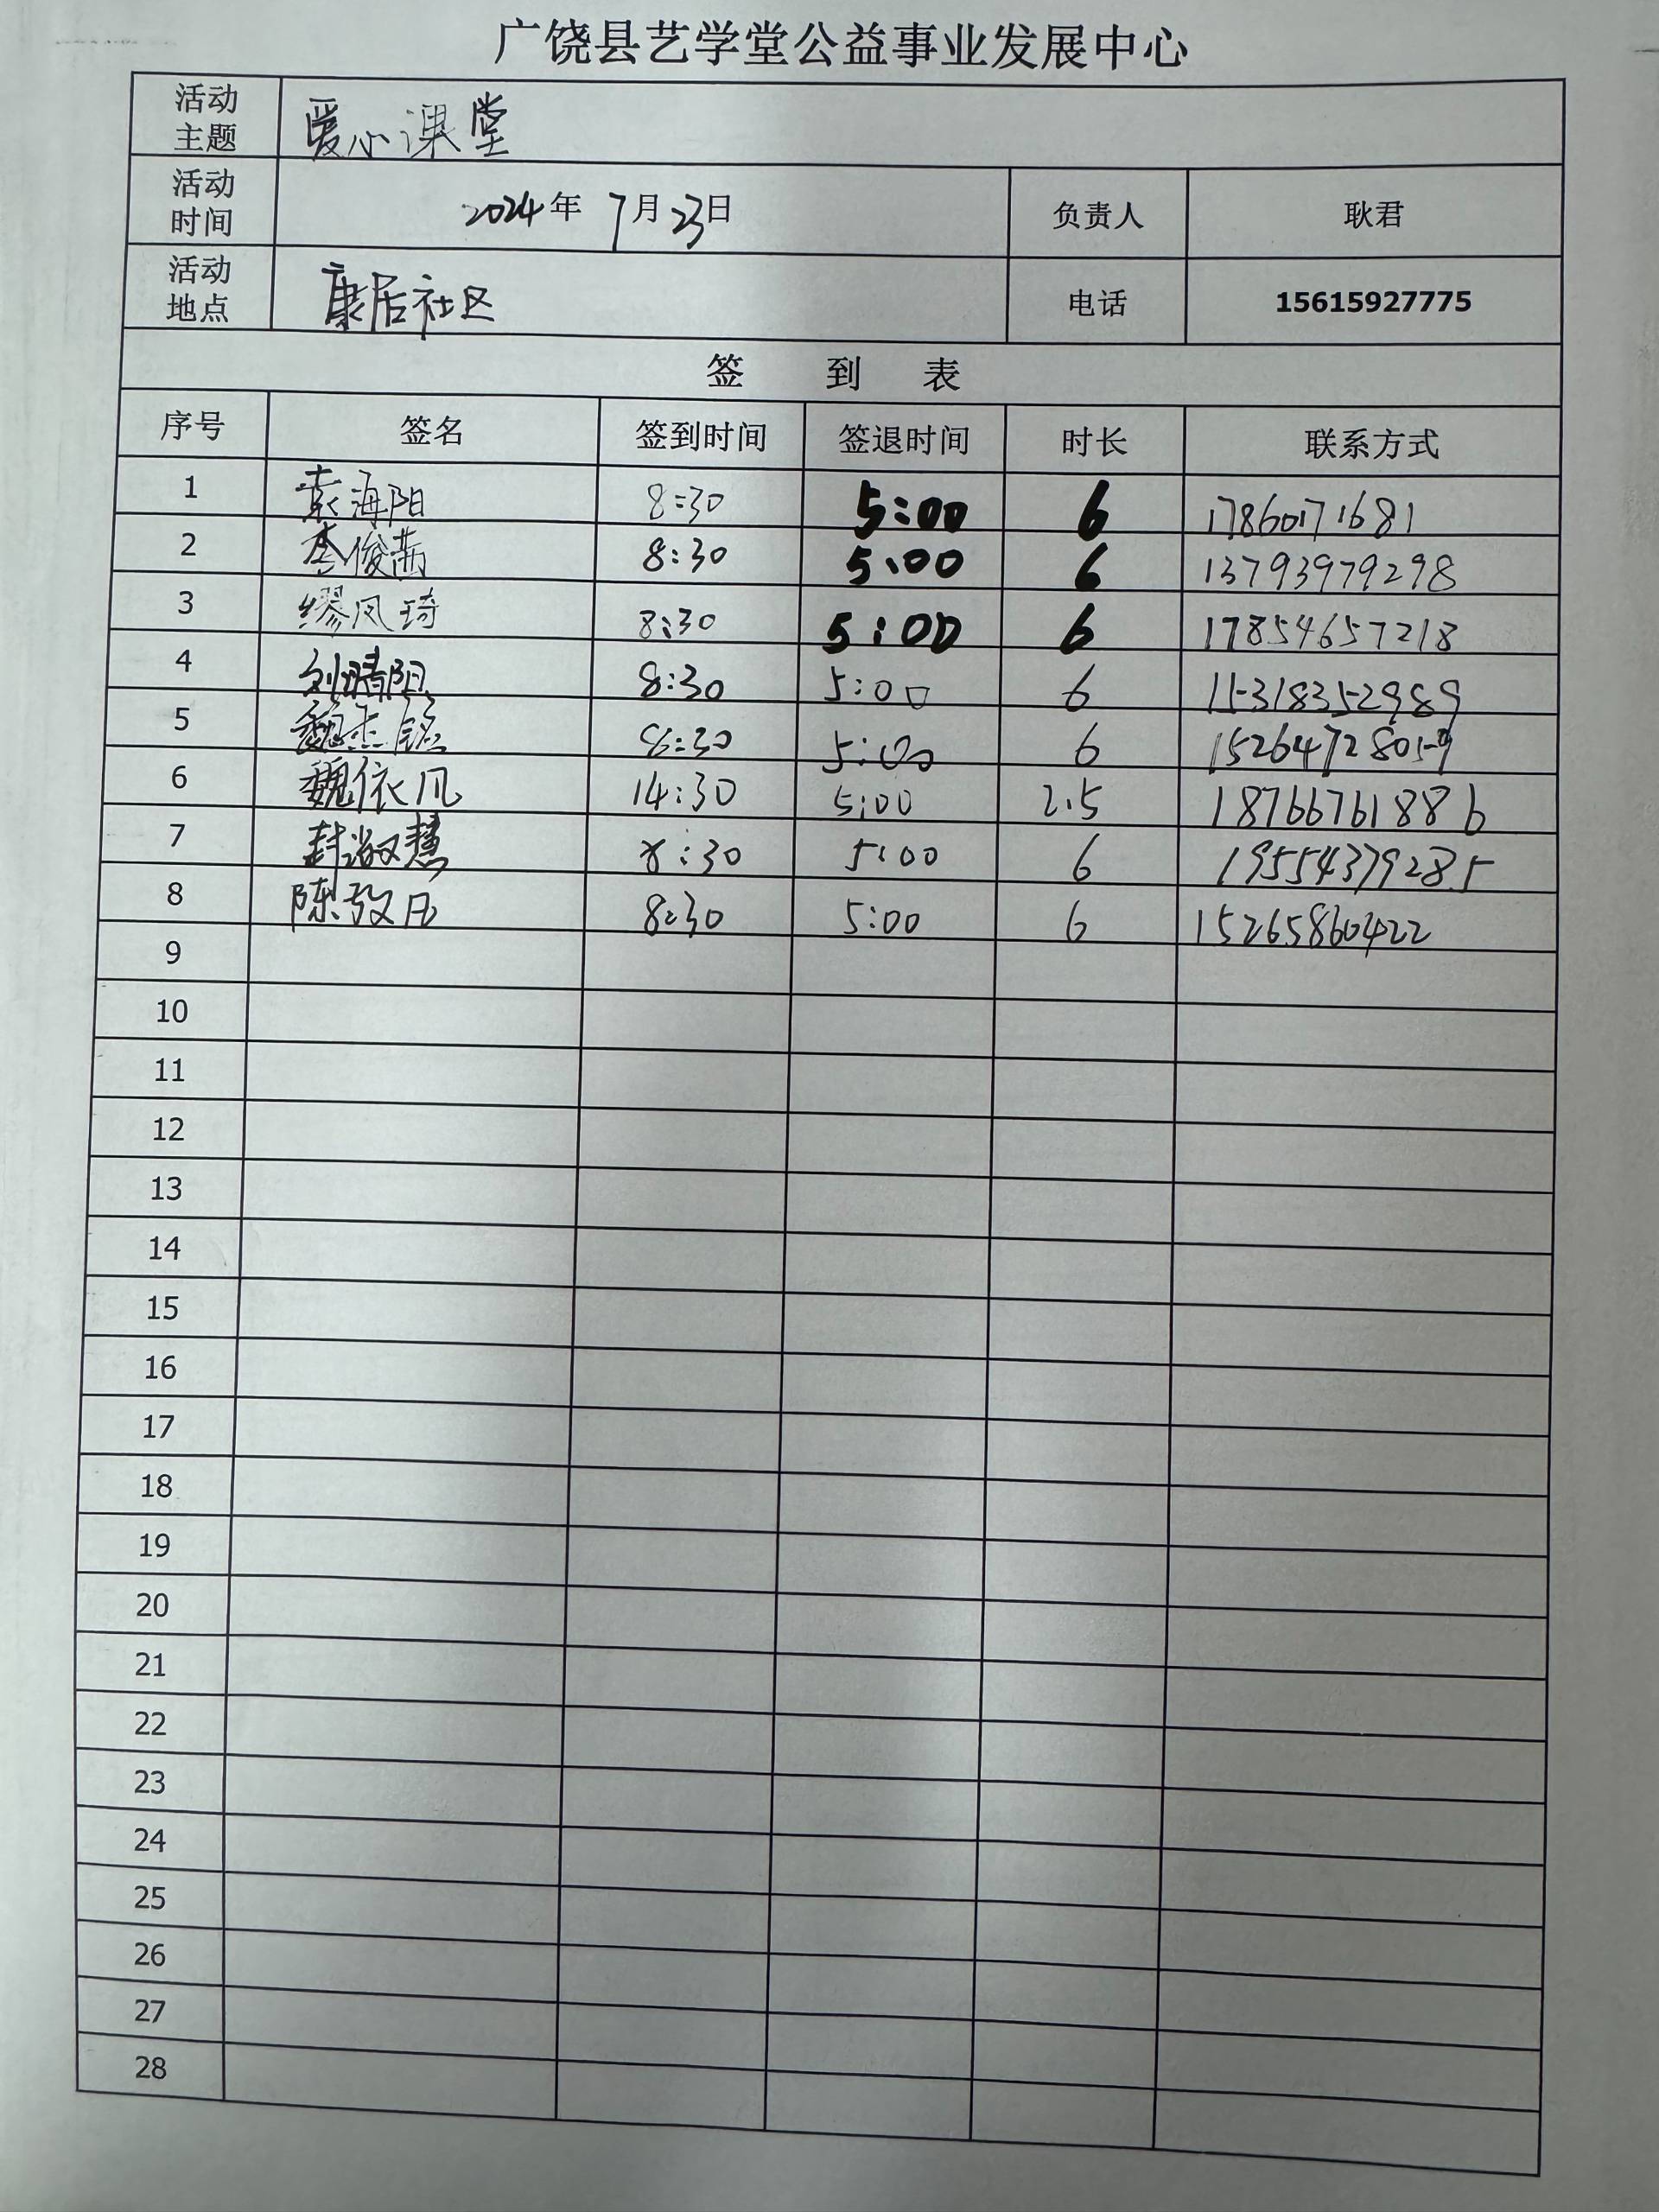 广饶县艺学堂公益事业发展中心
活动主题 爱心课堂
活动时间 2024年 7月23日 负责人 耿君
活动地点 康居社区 电话 15615927775
签 到 表
序号 签名 签到时间 签退时间 时长 联系方式
1 袁海阳 8:30 5:00 6 17860171681
2 李俊茜 8:30 5:00 6 13793979298
3 缪凤琦 8:30 5:00 6 17854657218
4 刘晴阳 8:30 5:00 6 15318352989
5 魏杰铭 8:30 5:00 6 15264728059
6 魏依凡 14:30 5:00 2.5 18766761886
7 封淑慧 8:30 5:00 6 19554379285
8 陈 8:30 5:00 6 15265860422
9
10
11
12
13
14
15
16
17
18
19
20
21
22
23
24
25
26
27
28